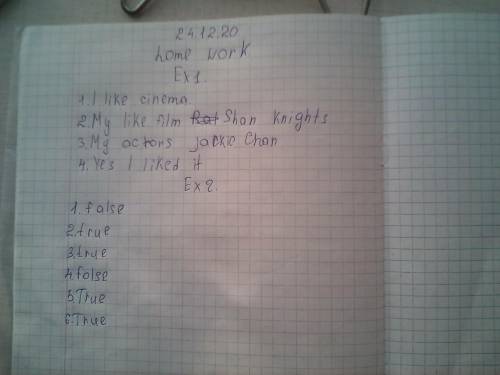 24.12.20
home work
Ex 1.
1. I like cinema.
2. My like film Shan Knights
3. My actors jackie Chan
4. Yes I liked it
Ex 2.
1. false
2. true
3. true
4. false
5. True
6. True